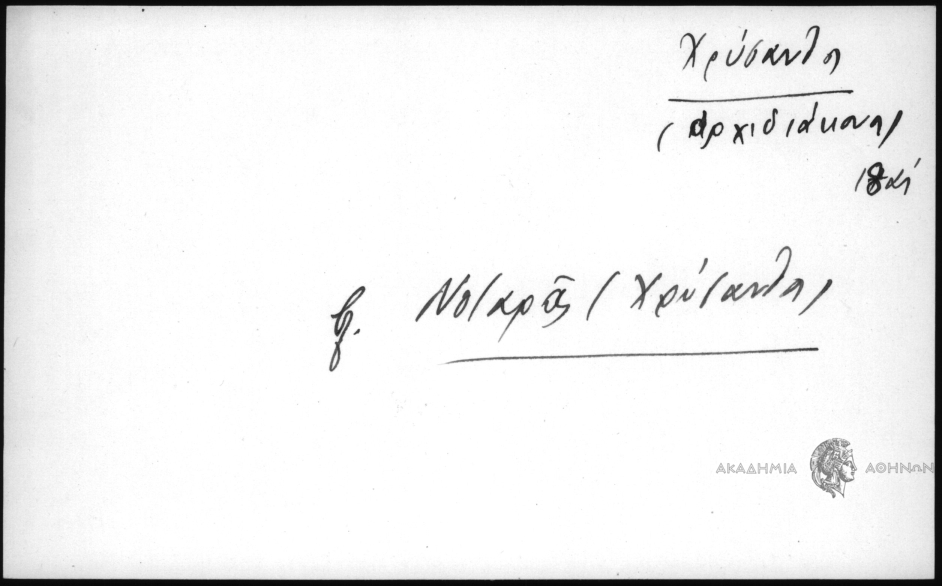 Χρύσανθος
(ἀρχιδιάκονος)
18 αἰ
β. Νοταρᾶς (Χρύσανθος)
ΑΚΑΔΗΜΙΑ ΑΘΗΝΩΝ